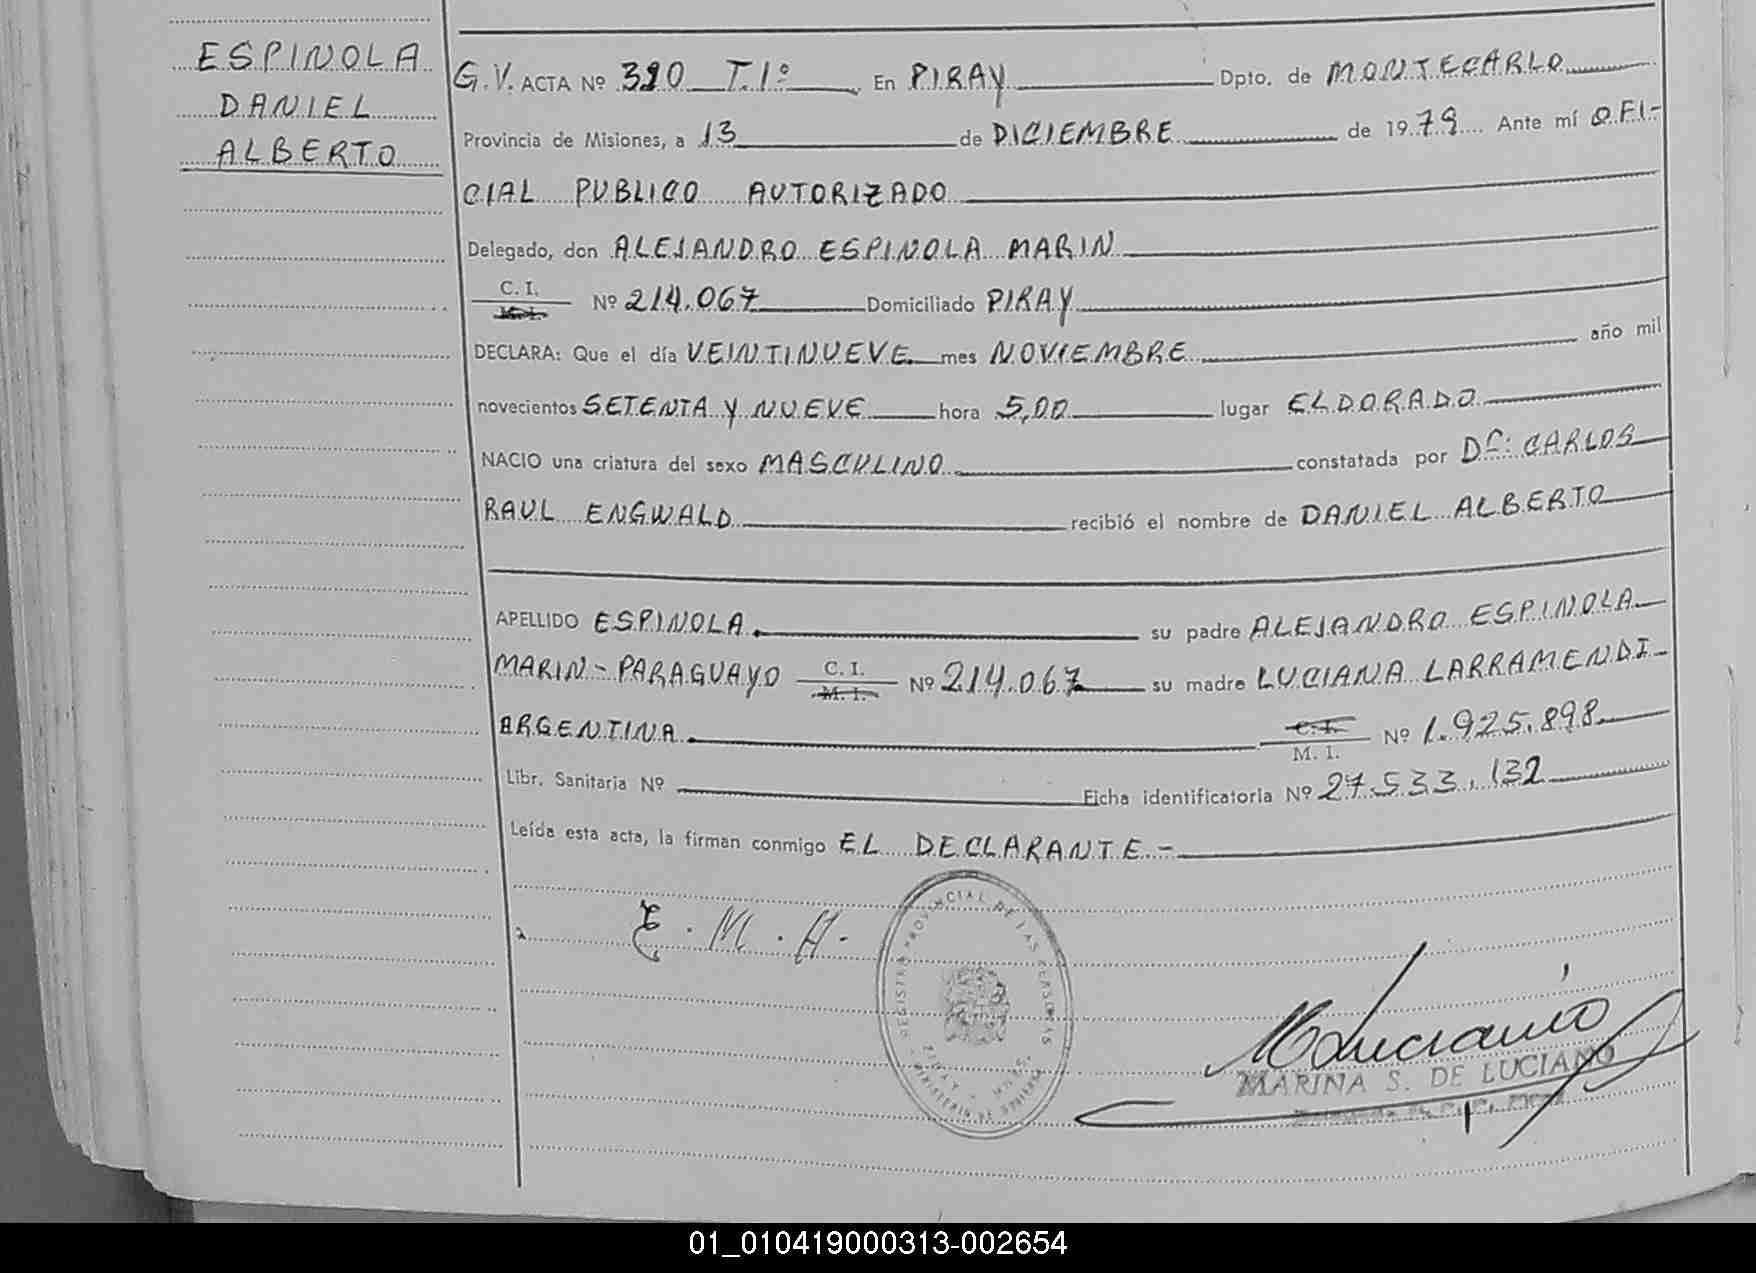 ESPINOLA
DANIEL
ALBERTO
G.V. ACTA Nº 320 T.1º En PIRAY Dpto. de MONTECARLO
Provincia de Misiones, a 13 de DICIEMBRE de 1979 Ante mí OFI-
CIAL PUBLICO AUTORIZADO
Delegado, don ALEJANDRO ESPINOLA MARIN
C. I.
M. I. Nº 214.067 Domiciliado PIRAY
DECLARA: Que el día VEINTINUEVE mes NOVIEMBRE año mil
novecientos SETENTA Y NUEVE hora 5,00 lugar ELDORADO
NACIO una criatura del sexo MASCULINO constatada por Dr: CARLOS
RAUL ENGWALD recibió el nombre de DANIEL ALBERTO
APELLIDO ESPINOLA. su padre ALEJANDRO ESPINOLA
MARIN - PARAGUAYO C. I. M. I. Nº 214.067 su madre LUCIANA LARRAMENDI-
ARGENTINA. C. I. M. I. Nº 1.925.898
Libr. Sanitaria Nº Ficha identificatoria Nº 27.533.132
Leída esta acta, la firman conmigo EL DECLARANTE.-
E. M. A.
REGISTRO PROVINCIAL DE LAS PERSONAS
PIRAY - MNES.
MLuciano
MARINA S. DE LUCIANO
01_010419000313-002654